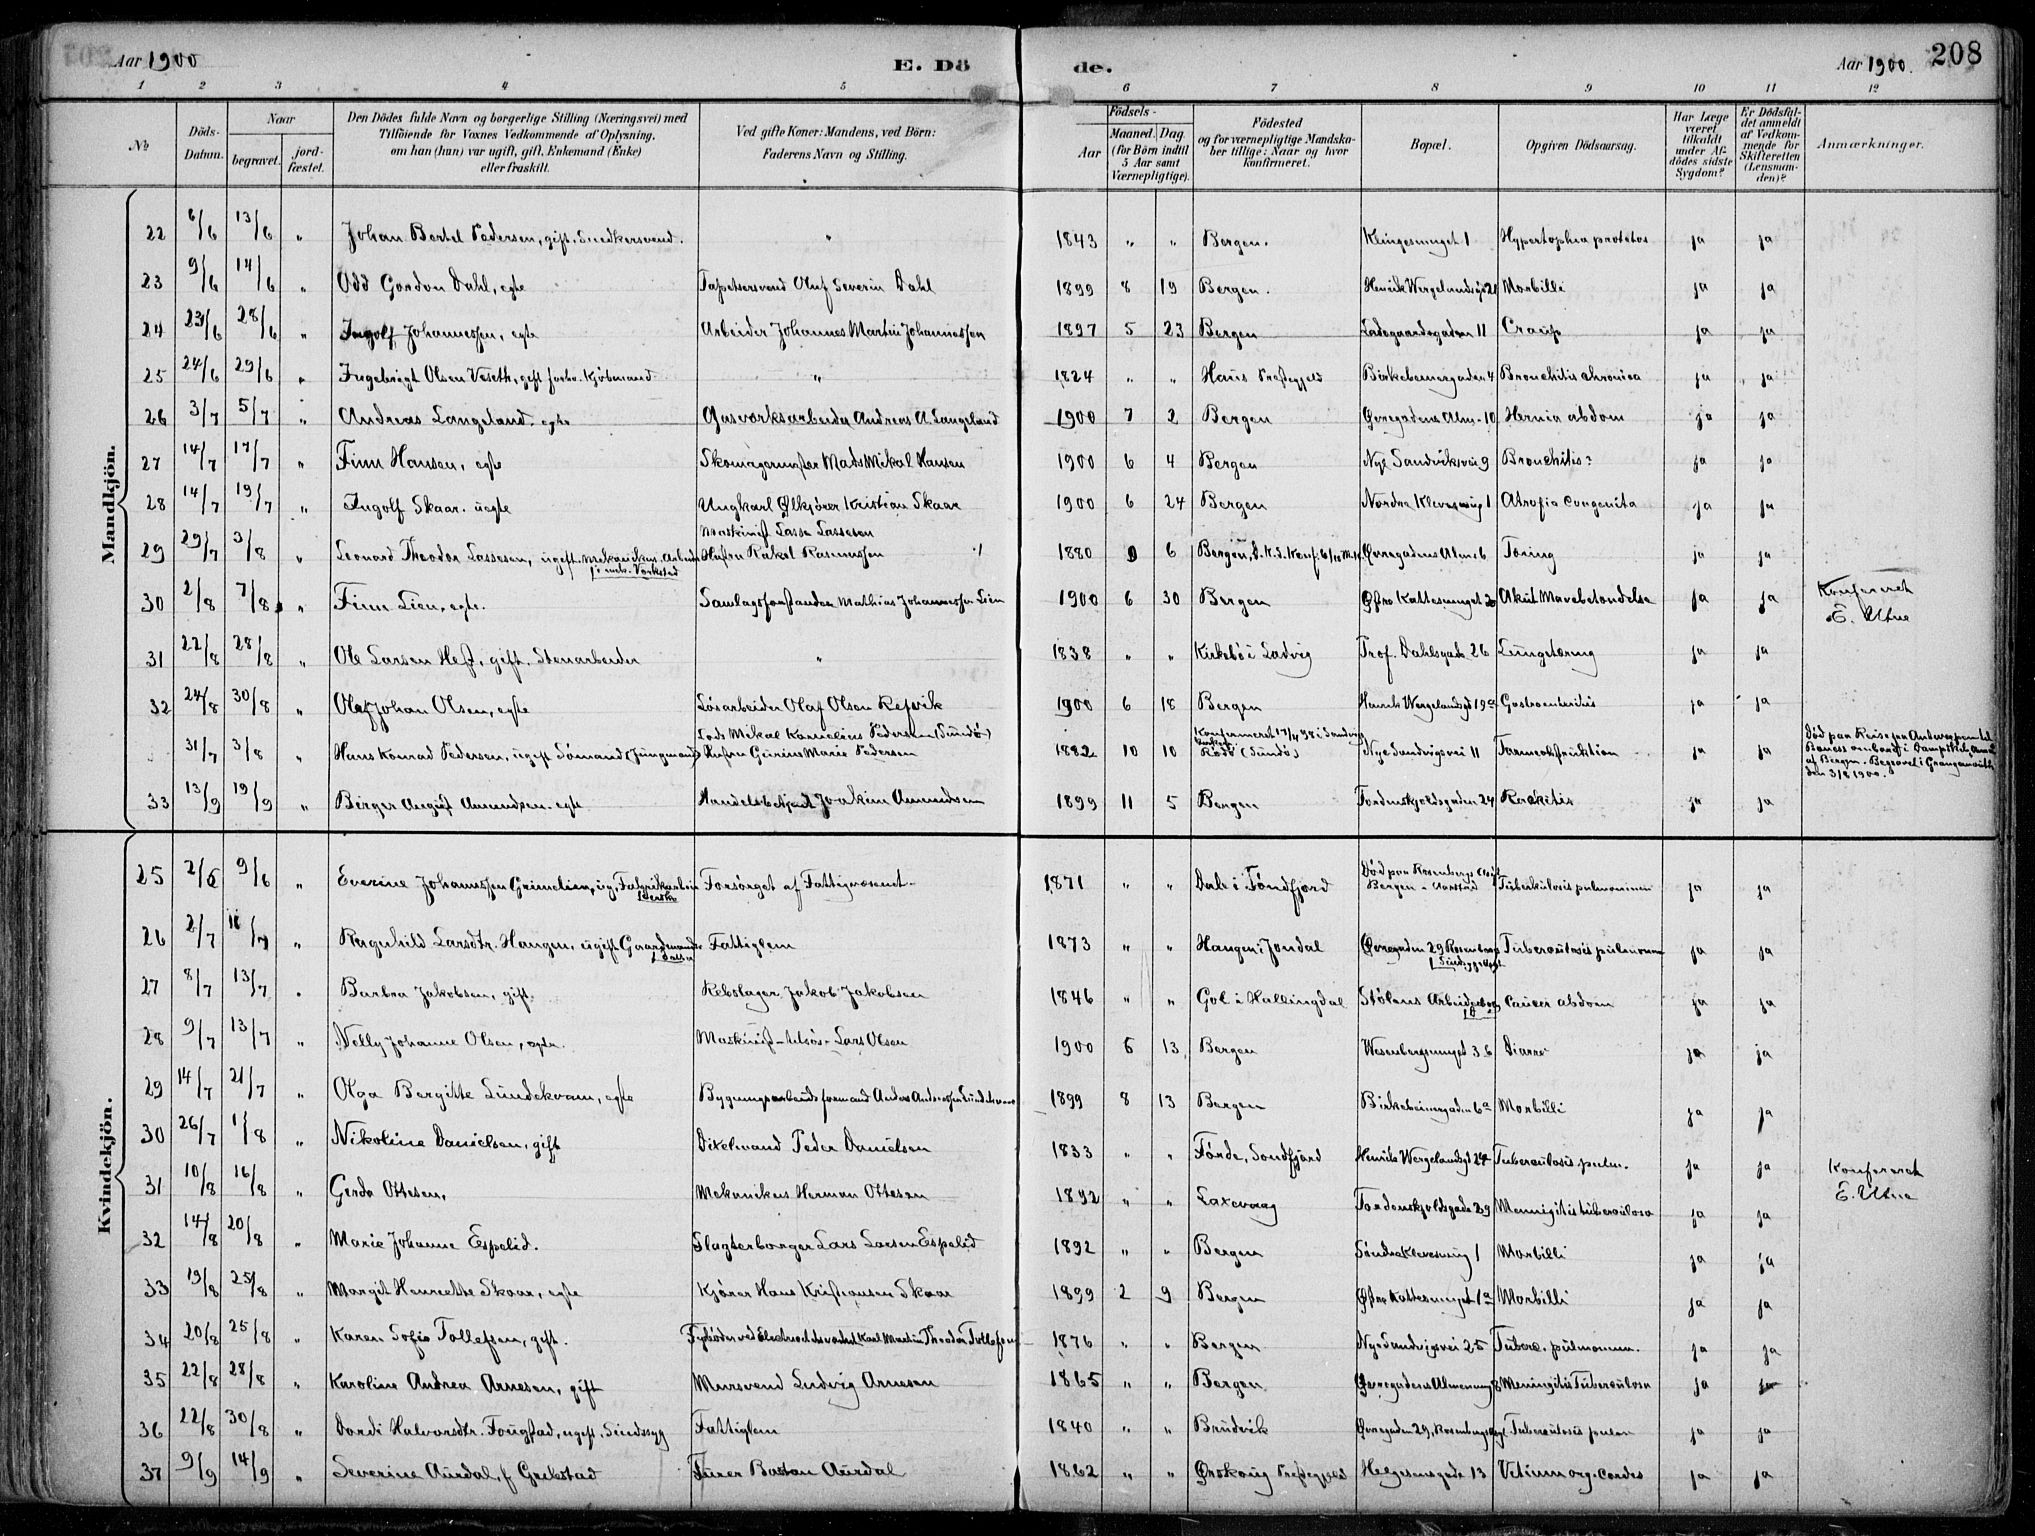 Aar 1900 E. Dö de. Aar 1900. 208
1 2 3 4 5 6 7 8 9 10 11 12
No Döds-Datum. Naar begravet. jord-fæstet. Den Dödes fulde Navn og borgerlige Stilling (Næringsvei) med Tilföiende for Voxnes Vedkommende af Oplysning. om han (hun) var ugift, gift, Enkemand (Enke) eller fraskilt. Ved gifte Koner: Mandens, ved Börn: Faderens Navn og Stilling. Födsels- Aar Maaned. Dag. (for Börn indtil 5 Aar samt Værnepligtige). Födested og for værnepligtige Mandskaber tillige: Naar og hvor konfirmeret. Bopæl. Opgiven Dödsaarsag. Har Læge været tilkaldt under Afdödes sidste Sygdom? Er Dödsfaldet anmeldt af Vedkommende for Skifteretten (Lensmanden)? Anmærkninger.
Mandkjön.
22 6/6 13/6 " Johan Bertel Pedersen, gift, Snedkersvend. " 1843 " " Bergen. Klingesmuget 1 Hypertophia protatos ja ja
23 9/6 14/6 " Odd Gordon Dahl, egte Tapetsersvend Oluf Severin Dahl 1899 8 19 Bergen. Henrik Wergelandsgd 21 Morbilli ja ja
24 23/6 28/6 " Ingolf Johannessen, egte Arbeider Johannes Martin Johannessen 1897 5 23 Bergen Ladegaardsgaden 11 Croup ja ja
25 24/6 29/6 " Ingebrigt Olsen Veseth, gift forhv. Kjøbmand " 1824 " " Haus Prestegjeld Birkebeinergaden 4 Bronchitis chronica ja ja
26 3/7 5/7 " Andreas Langeland. egte Gasværksarbeider Andreas A. Langeland 1900 7 2 Bergen Øvregadens Alm. 10 Hernia abdom ja ja
27 14/7 17/7 " Finn Hansen, egte Skomagermester Mads Mikal Hansen 1900 6 4 Bergen Nye Sandviksvei 9 Bronchitis ja ja
28 14/7 19/7 " Ingolf Skaar. uegte Ungkarl Ølkjører Kristian Skaar 1900 6 24 Bergen Nordre Klevesmug 1 Atrofia congenita ja ja
Maskinist Lasse Lassesen
29 29/7 3/8 " Leonard Theodor Lassesen, ugift. mekaniskus Arbeider i mek. Verksted Hustru Rakel Rasmussen 1880 9 6 Bergen, Øvregadens Alm. 6 Tæring ja ja
30 2/8 7/8 " Finn Lien, egte. Samlagsforstander Mathias Johannessen Lien 1900 6 30 Bergen Øvre Kattesmuget Akut Mavebetændelse ja ja Konfereret E. Utne
31 22/8 28/8 " Ole Larsen Hest, gift. Stenarbeider " 1838 " " Kirkebø i Ladvig Prof. Dahlsgade 26 Lungetæring ja ja
32 24/8 30/8 " Olaf Johan Olsen, egte Løsarbeider Olaf Olsen Refvik 1900 6 18 Bergen Henrik Wergelandsgd 19a Gastroenteritis ja ja
Lods Mikal Kornelius Pedersen (Sundø) Konfirmeret 17/4 98 i Sandvig
31/7 3/8 " Hans Konrad Pedersen, ugift Sømand (Jungmand) Hustru Gurine Marie Pedersen 1882 10 10 Rødø (Sundø) Nye Sandvigsvei 11 Tarmeobstruktion ja ja Død paa Reise fra Antwerpen til Boness ombord i Dampskib af Bergen. Begravet i Grangemouth den 3/8 1900.
33 13/9 19/9 " Birger August Amundsen. egte Handelsbetjent Joakim Amundsen 1899 11 5 Bergen Tordenskjoldsgaden 24 Rachitis ja ja
Kvindekjön.
25 2/6 9/6 " Everine Johannessen Grimelien, ug, Fabrikarbeiderske Forsørget af Fattigvæsenet 1871 " " Dale i Søndfjord Død paa Rosenbergs Bergen - Aarstad Tuberkulosis pulmonum ja ja
26 2/7 /7 " Ragnhild Larsdtr. Haugen, ugift Gaardmandsdatter Fattiglem 1873 " " Haugen i Jondal Øvregaden 29 Rosenbergs Sindsygeasyl Tuberculosis pulmonum ja ja
27 8/7 13/7 " Barbra Jakobsen, gift. Rebslager Jakob Jakobsen 1846 " " Gol i Hallingdal Stølens Arbeider Cancer abdom ja ja
28 9/7 13/7 " Nelly Johanne Olsen, egte. Maskinist - tilsøs - Lars Olsen 1900 6 13 Bergen Wesenbergsmuget 3 b Diarre ja ja
29 14/7 21/7 " Olga Bergitte Lundekvam, egte Bygningsarbeidsformand Anders Andreassen Lundekvam 1899 8 13 Bergen Birkebeinergaden 6a Morbilli ja ja
30 26/7 1/8 " Nikoline Danielsen, gift Dixelmand Peder Danielsen 1833 " " Førde, Søndfjord Henrik Wergelandsgd 24 Tuberculosis pulm. ja ja
31 10/8 16/8 " Gerda Ottesen, Mekanikus Herman Ottesen 1892 " " Laxevaag Tordenskjoldsgade 29 Meningitis tuberculosa ja ja Konfereret E. Utne
32 14/8 20/8 " Marie Johanne Espelid. Slagterborger Lars Larsen Espelid 1892 " " Bergen Søndre Klevesmug 1 Morbilli ja ja
33 19/8 25/8 " Margit Henriette Skaar, egte Kjører Hans Kristiansen Skaar 1899 2 9 Bergen Øvre Kattesmuget 1a Morbilli ja ja
34 20/8 25/8 " Karen Sofie Tollefsen, gift. Fyrbøder ved Karl Martin Theodor Tollefsen 1876 " " Bergen Nye Sandvigsvei 25 Tuberc. pulmonum. ja ja
35 22/8 28/8 " Karoline Andrea Arnesen, gift Mursvend Ludvig Arnesen 1865 " " Bergen Øvregadens Almenning 8 Meningitis Tuberculosa ja ja
36 22/8 30/8 " Dordi Halvorsdtr. Fougstad, ugift, Sindssyg Fattiglem 1840 " " Bruvik Øvregaden 29, Rosenbergs Tuberculosis pulm ja ja
37 9/9 14/9 " Severine Aurdal, f. Grebstad Furer Bastian Aurdal 1862 " " Ørskoug Prestegjeld Helgesensgade 13 Vitium org. cordis ja ja